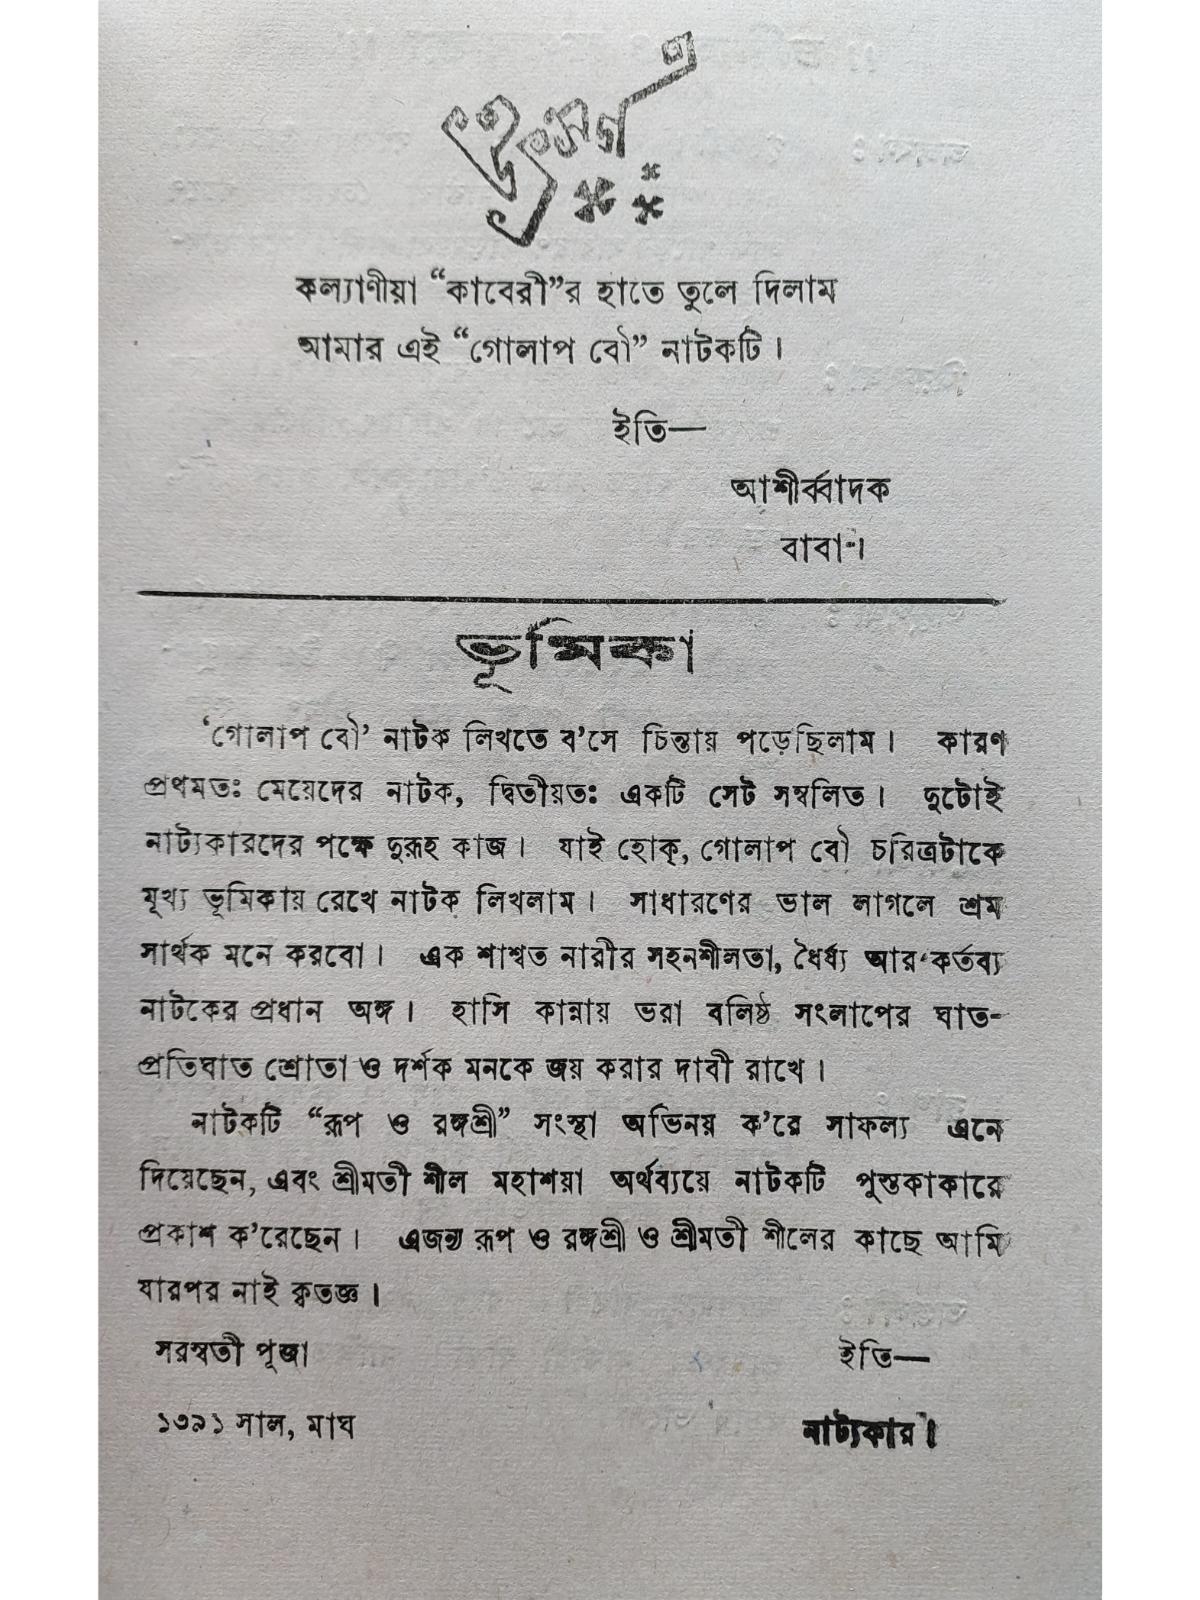 উৎসর্গ
কল্যাণীয়া “কাবেরী”র হাতে তুলে দিলাম
আমার এই “গোলাপ বৌ” নাটকটি।
ইতি—
আশীর্ব্বাদক
বাবা।
ভূমিকা
‘গোলাপ বৌ’ নাটক লিখতে ব’সে চিন্তায় পড়েছিলাম। কারণ
প্রথমতঃ মেয়েদের নাটক, দ্বিতীয়তঃ একটি সেট সম্বলিত। দুটোই
নাট্যকারদের পক্ষে দুরূহ কাজ। যাই হোক্, গোলাপ বৌ চরিত্রটাকে
মূখ্য ভূমিকায় রেখে নাটক লিখলাম। সাধারণের ভাল লাগলে শ্রম
সার্থক মনে করবো। এক শাশ্বত নারীর সহনশীলতা, ধৈর্য্য আর কর্তব্য
নাটকের প্রধান অঙ্গ। হাসি কান্নায় ভরা বলিষ্ঠ সংলাপের ঘাত-
প্রতিঘাত শ্রোতা ও দর্শক মনকে জয় করার দাবী রাখে।
নাটকটি “রূপ ও রঙ্গশ্রী” সংস্থা অভিনয় ক’রে সাফল্য এনে
দিয়েছেন, এবং শ্রীমতী শীল মহাশয়া অর্থব্যয়ে নাটকটি পুস্তকাকারে
প্রকাশ ক’রেছেন। এজন্য রূপ ও রঙ্গশ্রী ও শ্রীমতী শীলের কাছে আমি
যারপর নাই কৃতজ্ঞ।
সরস্বতী পূজা
ইতি—
১৩৯১ সাল, মাঘ
নাট্যকার।